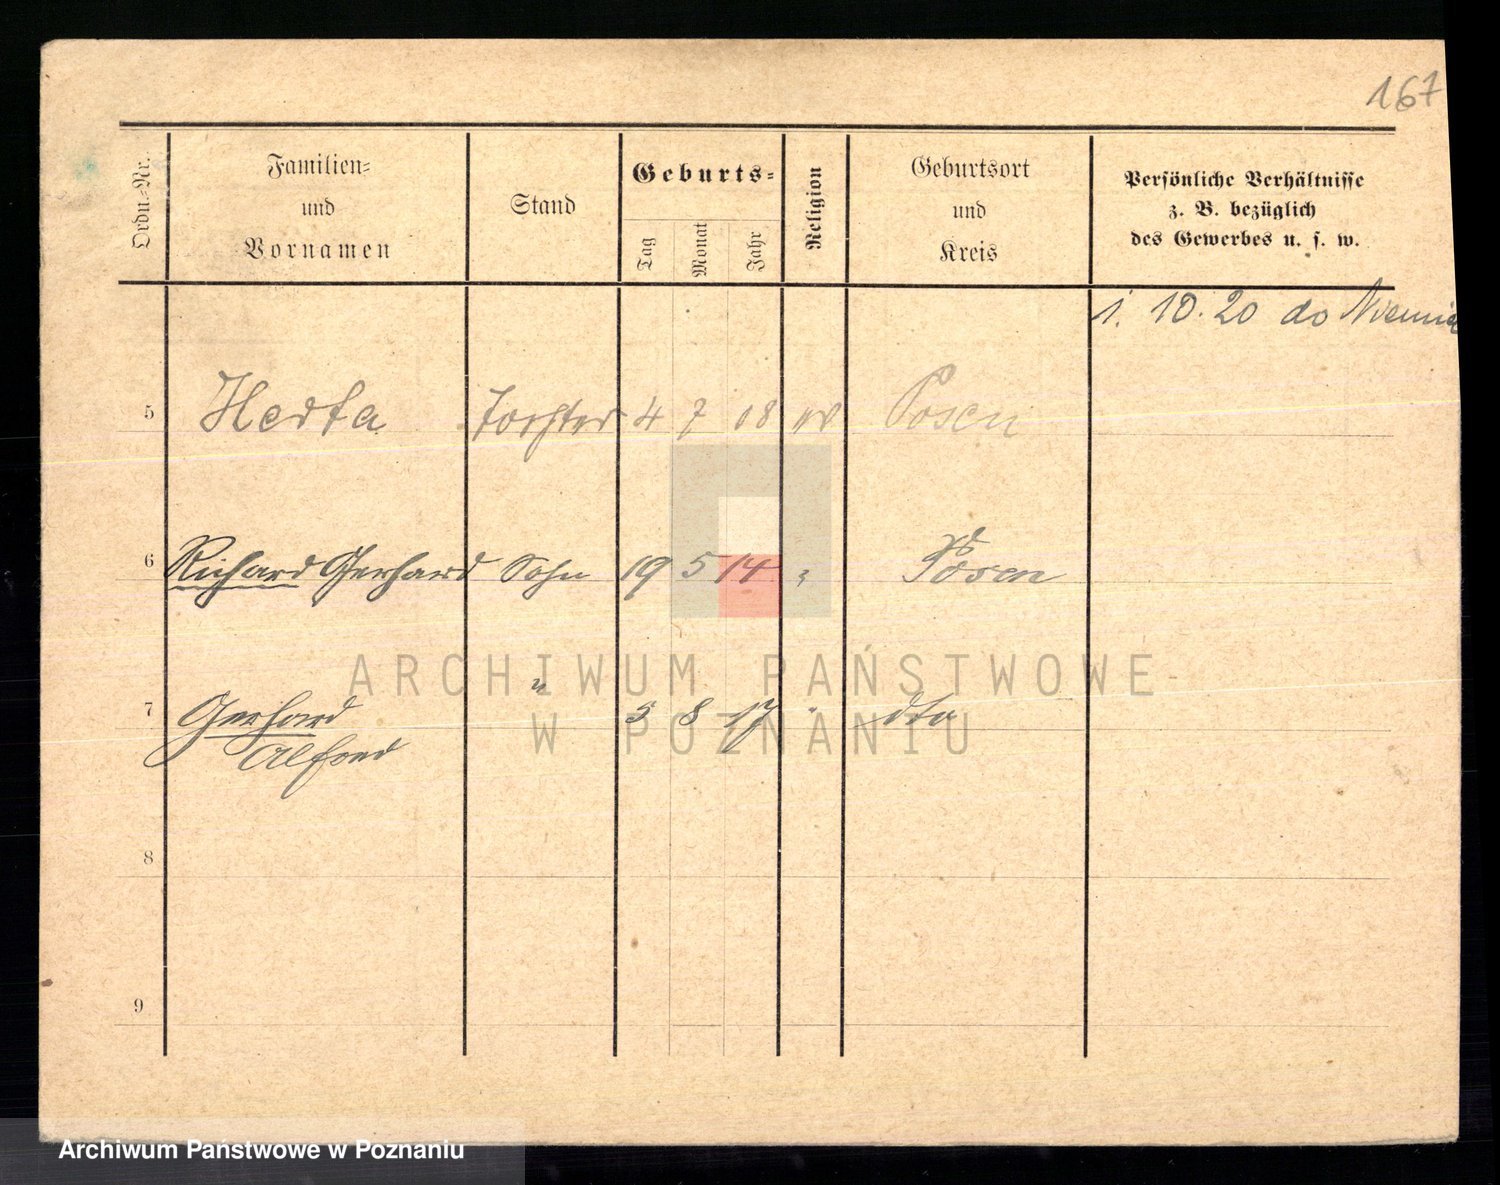 167
Ordn.-Nr.
Familien-
und
Vornamen
Stand
Geburts-
Tag
Monat
Jahr
Religion
Geburtsort
und
Kreis
Persönliche Verhältnisse
z. B. bezüglich
des Gewerbes u. s. w.
1. 10. 20 do Niemiec
5 Herta Tochter 4 7 08 Posen
6 Richard Gerhard Sohn 19 5 14 " Posen
7 Gerhard " 5 8 17 " dto
Alfred
8
9
ARCHIWUM PAŃSTWOWE
W POZNANIU
Archiwum Państwowe w Poznaniu